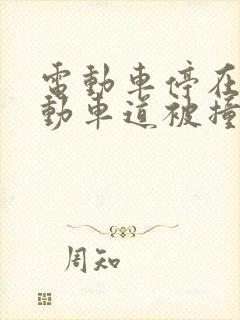 電動車停在
動車道被撞
周知